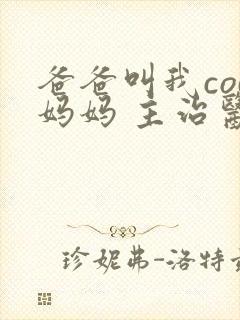 爸爸叫我co
妈妈 主治
珍妮弗-洛特